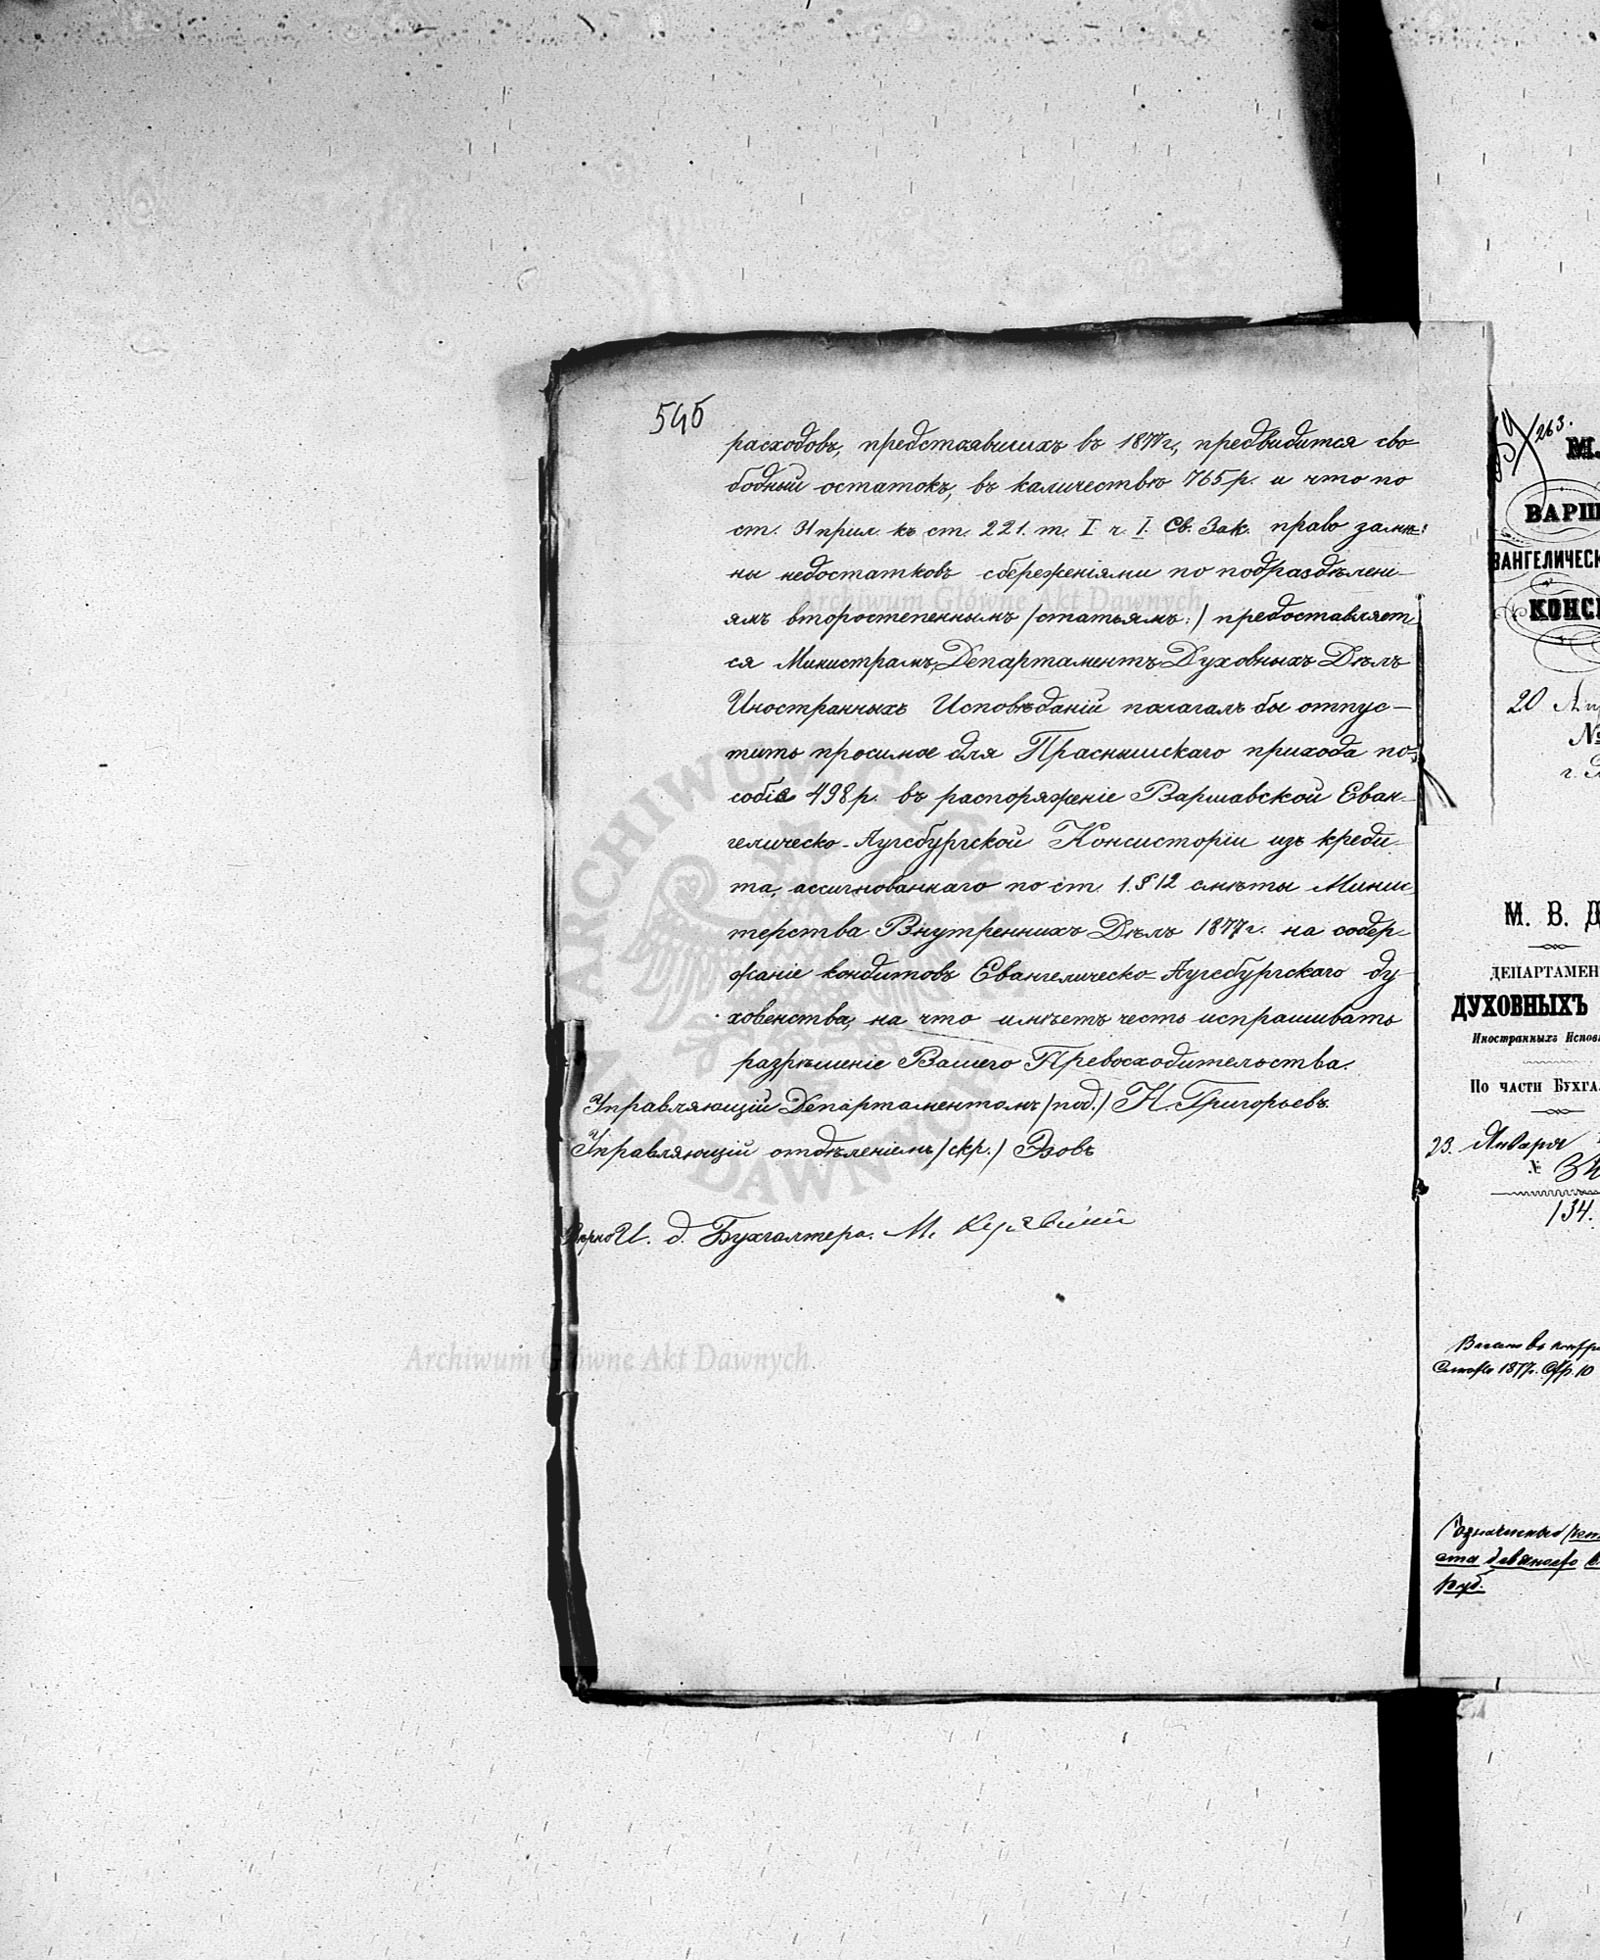 546
расходовъ, предстоявшихъ въ 1877 г., предвидится сво-
бодный остатокъ, въ количествѣ 765 р. и что по
ст. 31 прил. къ ст. 221. т. I ч. I. Св. Зак. право замѣ-
ны недостатковъ сбереженіями по подраздѣлені-
ямъ второстепеннымъ /статьямъ:/ предоставляет-
ся Министрамъ, Департаментъ Духовныхъ Дѣлъ
Иностранныхъ Исповѣданій полагалъ бы отпус-
тить просимое для Праснышскаго прихода по-
собіе 498 р. въ распоряженіе Варшавской Еван-
гелическо-Аугсбургской Консисторіи изъ креди-
та, ассигнованнаго по ст. 1. § 12 смѣты Минис-
терства Внутреннихъ Дѣлъ 1877 г. на содер-
жаніе кондитовъ Евангелическо-Аугсбургскаго ду-
ховенства, на что имѣетъ честь испрашивать
разрѣшеніе Вашего Превосходительства.
Управляющій Департаментомъ /под./ Н. Григорьевъ.
Управляющій отдѣленіемъ /скр./ Эзовъ
Вѣрно И. д. Бухгалтера. М.
263.
М.
ВАРШ
ВАНГЕЛИЧЕСК
КОНСИ
20
№
г.
М. В. Д
ДЕПАРТАМЕН
ДУХОВНЫХЪ
Иностранныхъ Испов
По части Бухга
23. Января
№
134.
1877 г. 10
руб.
Archiwum Główne Akt Dawnych
Archiwum Główne Akt Dawnych
ARCHIWUM GŁÓWNE AKT DAWNYCH